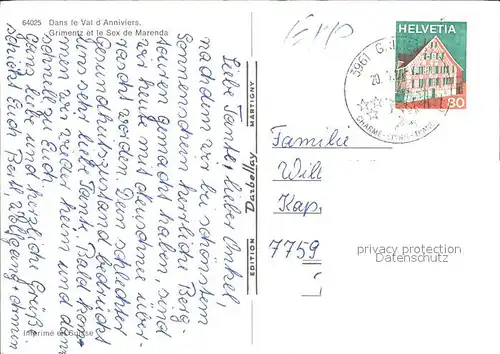 64025 Dans le Val d'Anniviers,
Grimentz et le Sex de Marenda
Liebe Tante, lieber Onkel,
nachdem wir bei schönstem
Sonnenschein herrliche Berg-
touren gemacht haben, sind
wir heute mit Neuschnee über-
rascht worden. Dein schlechter
Gesundheitszustand bedrückt
uns sehr, liebe Tante. Bald kom-
men wir wieder heim und dann
schnell zu Euch.
Ganz liebe und herzliche Grüße
schickt Euch Berti, Wolfgang + Armin
Imprimé en Suisse
EDITION Darbellay MARTIGNY
HELVETIA
30
3961
20.
CHARME
Familie
Will
Kap
7759
privacy protection
Datenschutz